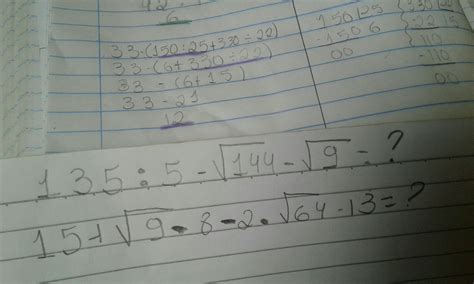 6
33-(150:25+330÷22)
33-(6+330÷22)
33 - (6+15)
33-21
12
150|25
-150 6
00
330|22
-22 15
110
-110
00
135:5-√144-√9=?
15+√9·8-2·√64-13=?